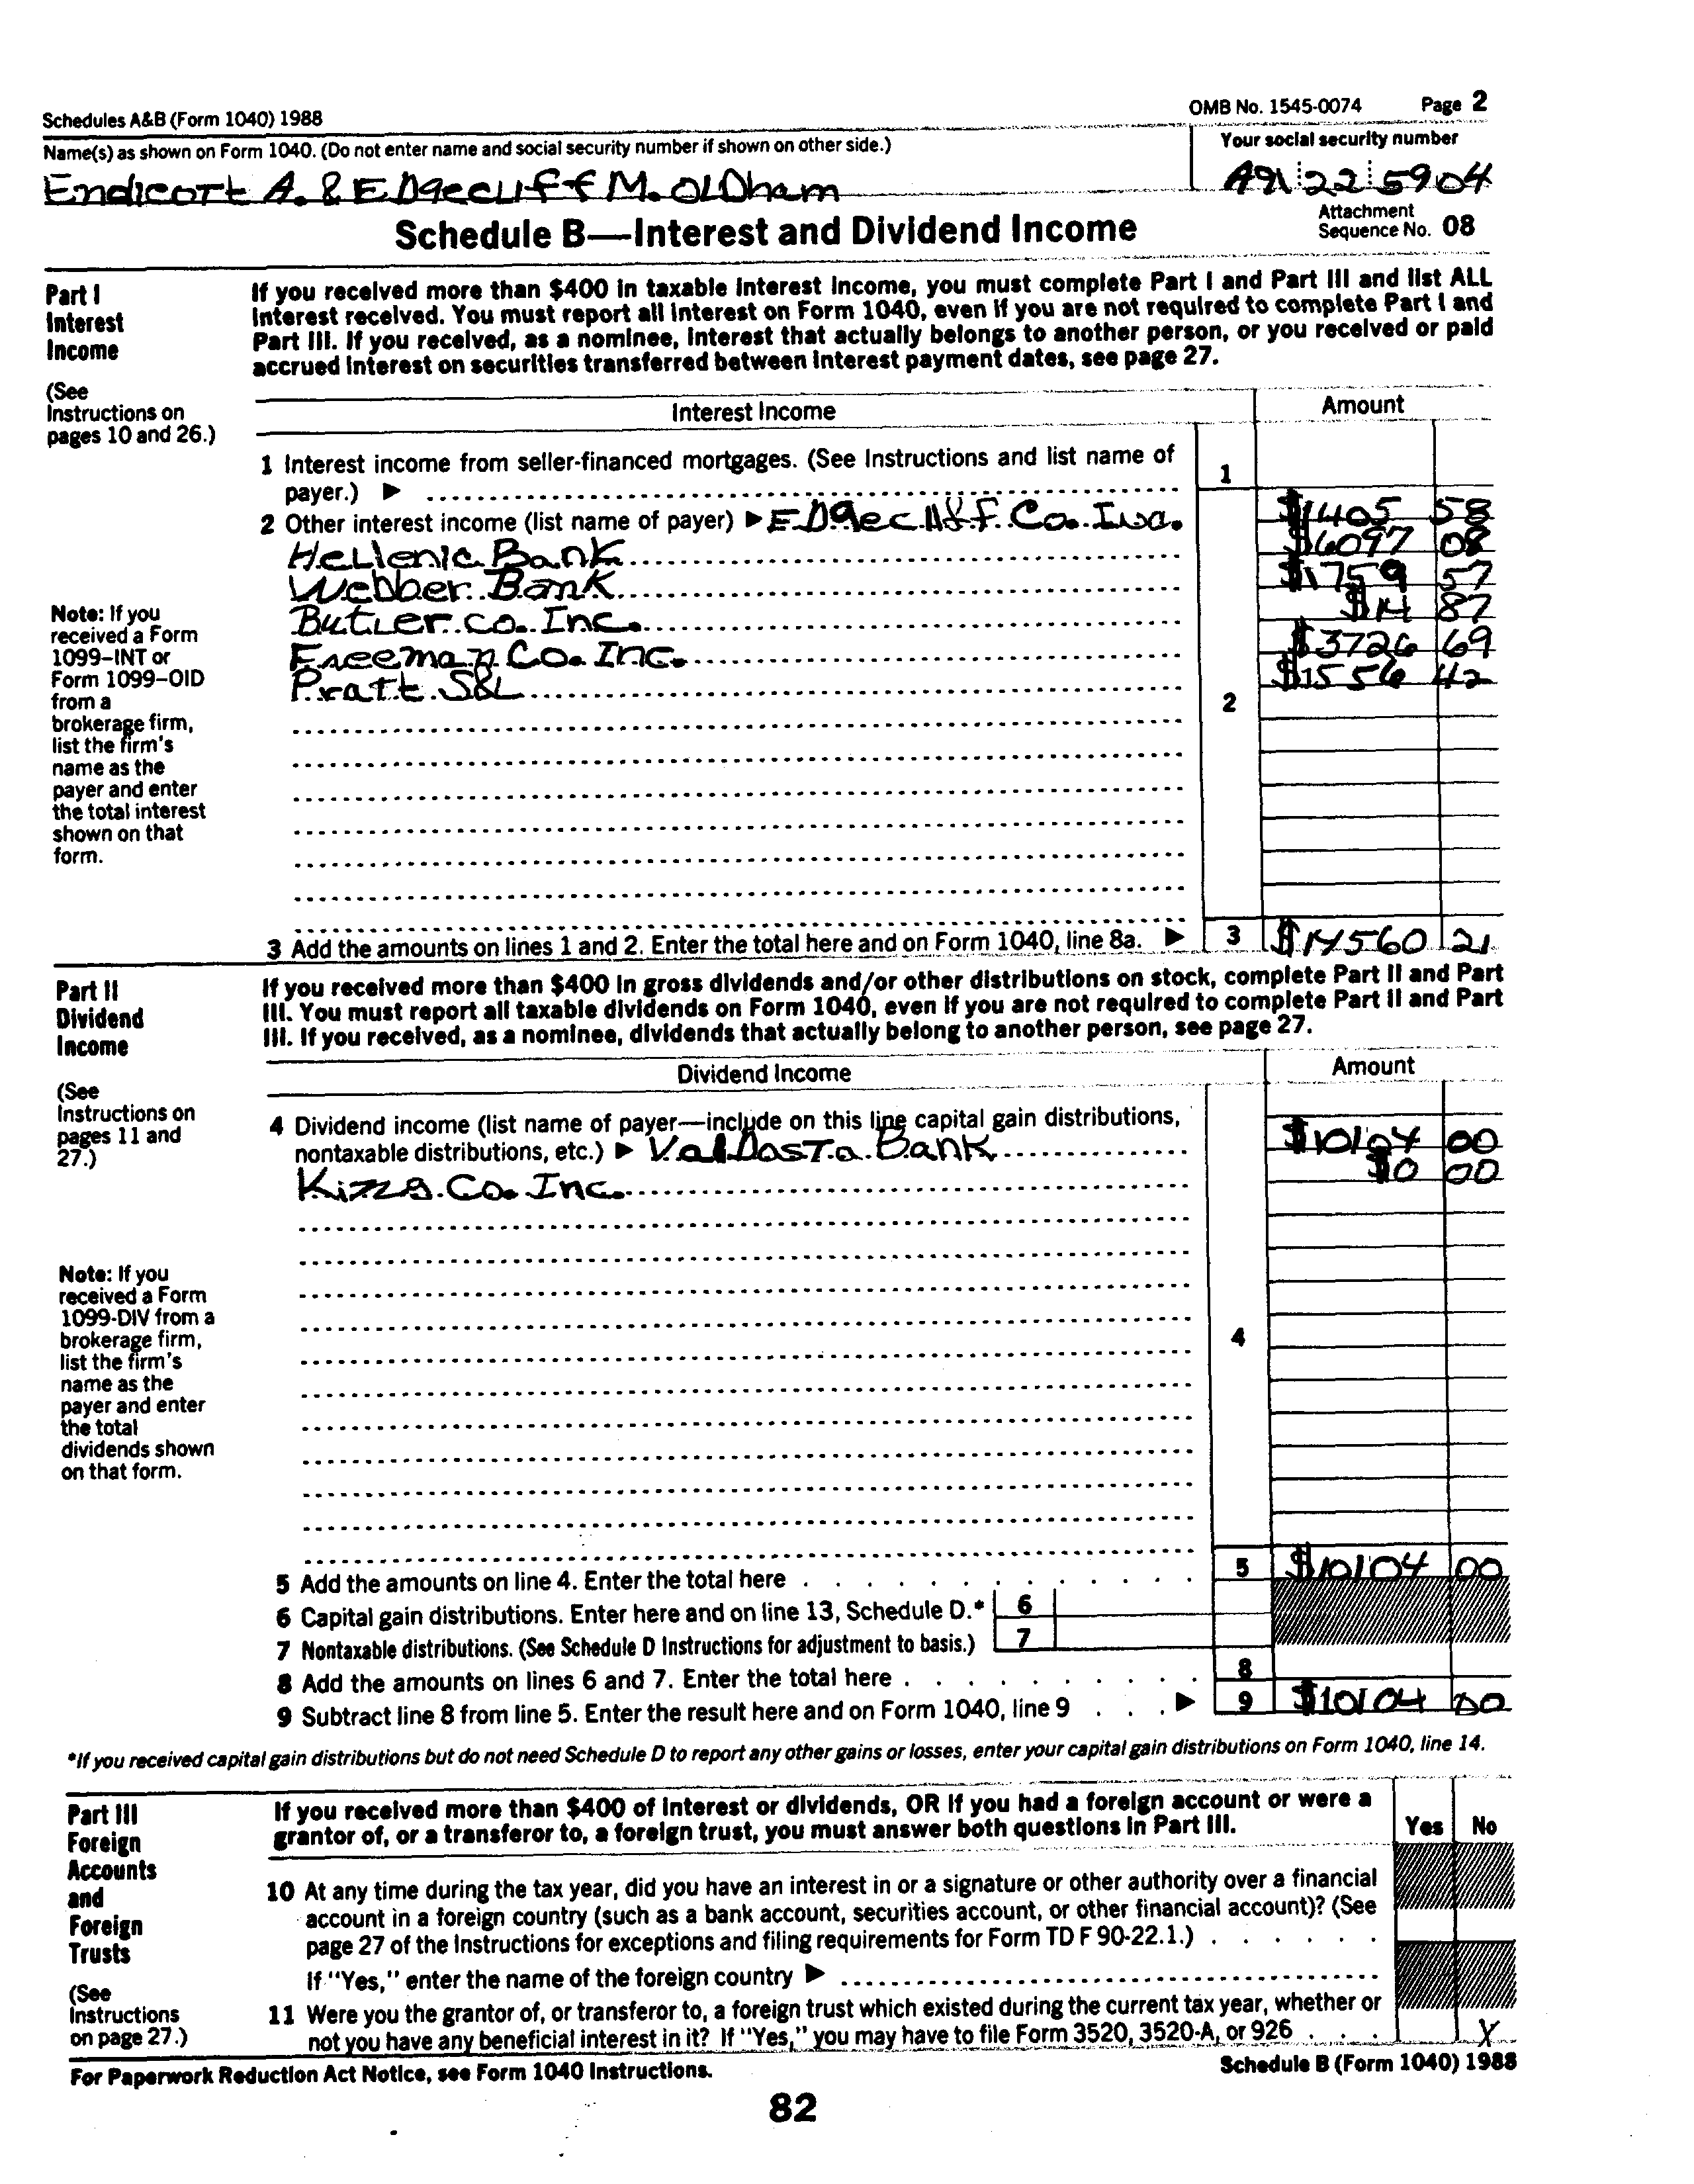 Schedules A&B (Form 1040) 1988
OMB No. 1545-0074 Page 2
Name(s) as shown on Form 1040. (Do not enter name and social security number if shown on other side.)
Your social security number
Endicott A. & EDgecliff M. OLDham
22 5904
Schedule B—Interest and Dividend Income
Attachment
Sequence No. 08
Part I
Interest
Income
(See
Instructions on
pages 10 and 26.)
If you received more than $400 in taxable interest income, you must complete Part I and Part III and list ALL
interest received. You must report all interest on Form 1040, even if you are not required to complete Part I and
Part III. If you received, as a nominee, interest that actually belongs to another person, or you received or paid
accrued interest on securities transferred between interest payment dates, see page 27.
Interest Income
Amount
1 Interest income from seller-financed mortgages. (See Instructions and list name of
payer.) ▶
1
2 Other interest income (list name of payer) ▶ EDgecliff Co. Inc. $1405 58
Hellenic Bank $6097 08
Webber Bank $1759 57
Butler co. Inc. $14 87
Freeman Co. Inc. $3726 69
Pratt S&L $1556 42
2
Note: If you
received a Form
1099–INT or
Form 1099–OID
from a
brokerage firm,
list the firm's
name as the
payer and enter
the total interest
shown on that
form.
3 Add the amounts on lines 1 and 2. Enter the total here and on Form 1040, line 8a. ▶ 3 $14560 21
Part II
Dividend
Income
(See
Instructions on
pages 11 and
27.)
If you received more than $400 in gross dividends and/or other distributions on stock, complete Part II and Part
III. You must report all taxable dividends on Form 1040, even if you are not required to complete Part II and Part
III. If you received, as a nominee, dividends that actually belong to another person, see page 27.
Dividend Income
Amount
4 Dividend income (list name of payer—include on this line capital gain distributions,
nontaxable distributions, etc.) ▶ ValDosTa Bank $10104 00
Kizzs Co. Inc. $0 00
4
Note: If you
received a Form
1099-DIV from a
brokerage firm,
list the firm's
name as the
payer and enter
the total
dividends shown
on that form.
5 Add the amounts on line 4. Enter the total here 5 $10104 00
6 Capital gain distributions. Enter here and on line 13, Schedule D.* 6
7 Nontaxable distributions. (See Schedule D Instructions for adjustment to basis.) 7
8 Add the amounts on lines 6 and 7. Enter the total here 8
9 Subtract line 8 from line 5. Enter the result here and on Form 1040, line 9 ▶ 9 $10104 00
*If you received capital gain distributions but do not need Schedule D to report any other gains or losses, enter your capital gain distributions on Form 1040, line 14.
Part III
Foreign
Accounts
and
Foreign
Trusts
(See
Instructions
on page 27.)
If you received more than $400 of interest or dividends, OR if you had a foreign account or were a
grantor of, or a transferor to, a foreign trust, you must answer both questions in Part III.
Yes No
10 At any time during the tax year, did you have an interest in or a signature or other authority over a financial
account in a foreign country (such as a bank account, securities account, or other financial account)? (See
page 27 of the Instructions for exceptions and filing requirements for Form TD F 90-22.1.)
If "Yes," enter the name of the foreign country ▶
11 Were you the grantor of, or transferor to, a foreign trust which existed during the current tax year, whether or
not you have any beneficial interest in it? If "Yes," you may have to file Form 3520, 3520-A, or 926 X
For Paperwork Reduction Act Notice, see Form 1040 Instructions.
Schedule B (Form 1040) 1988
82